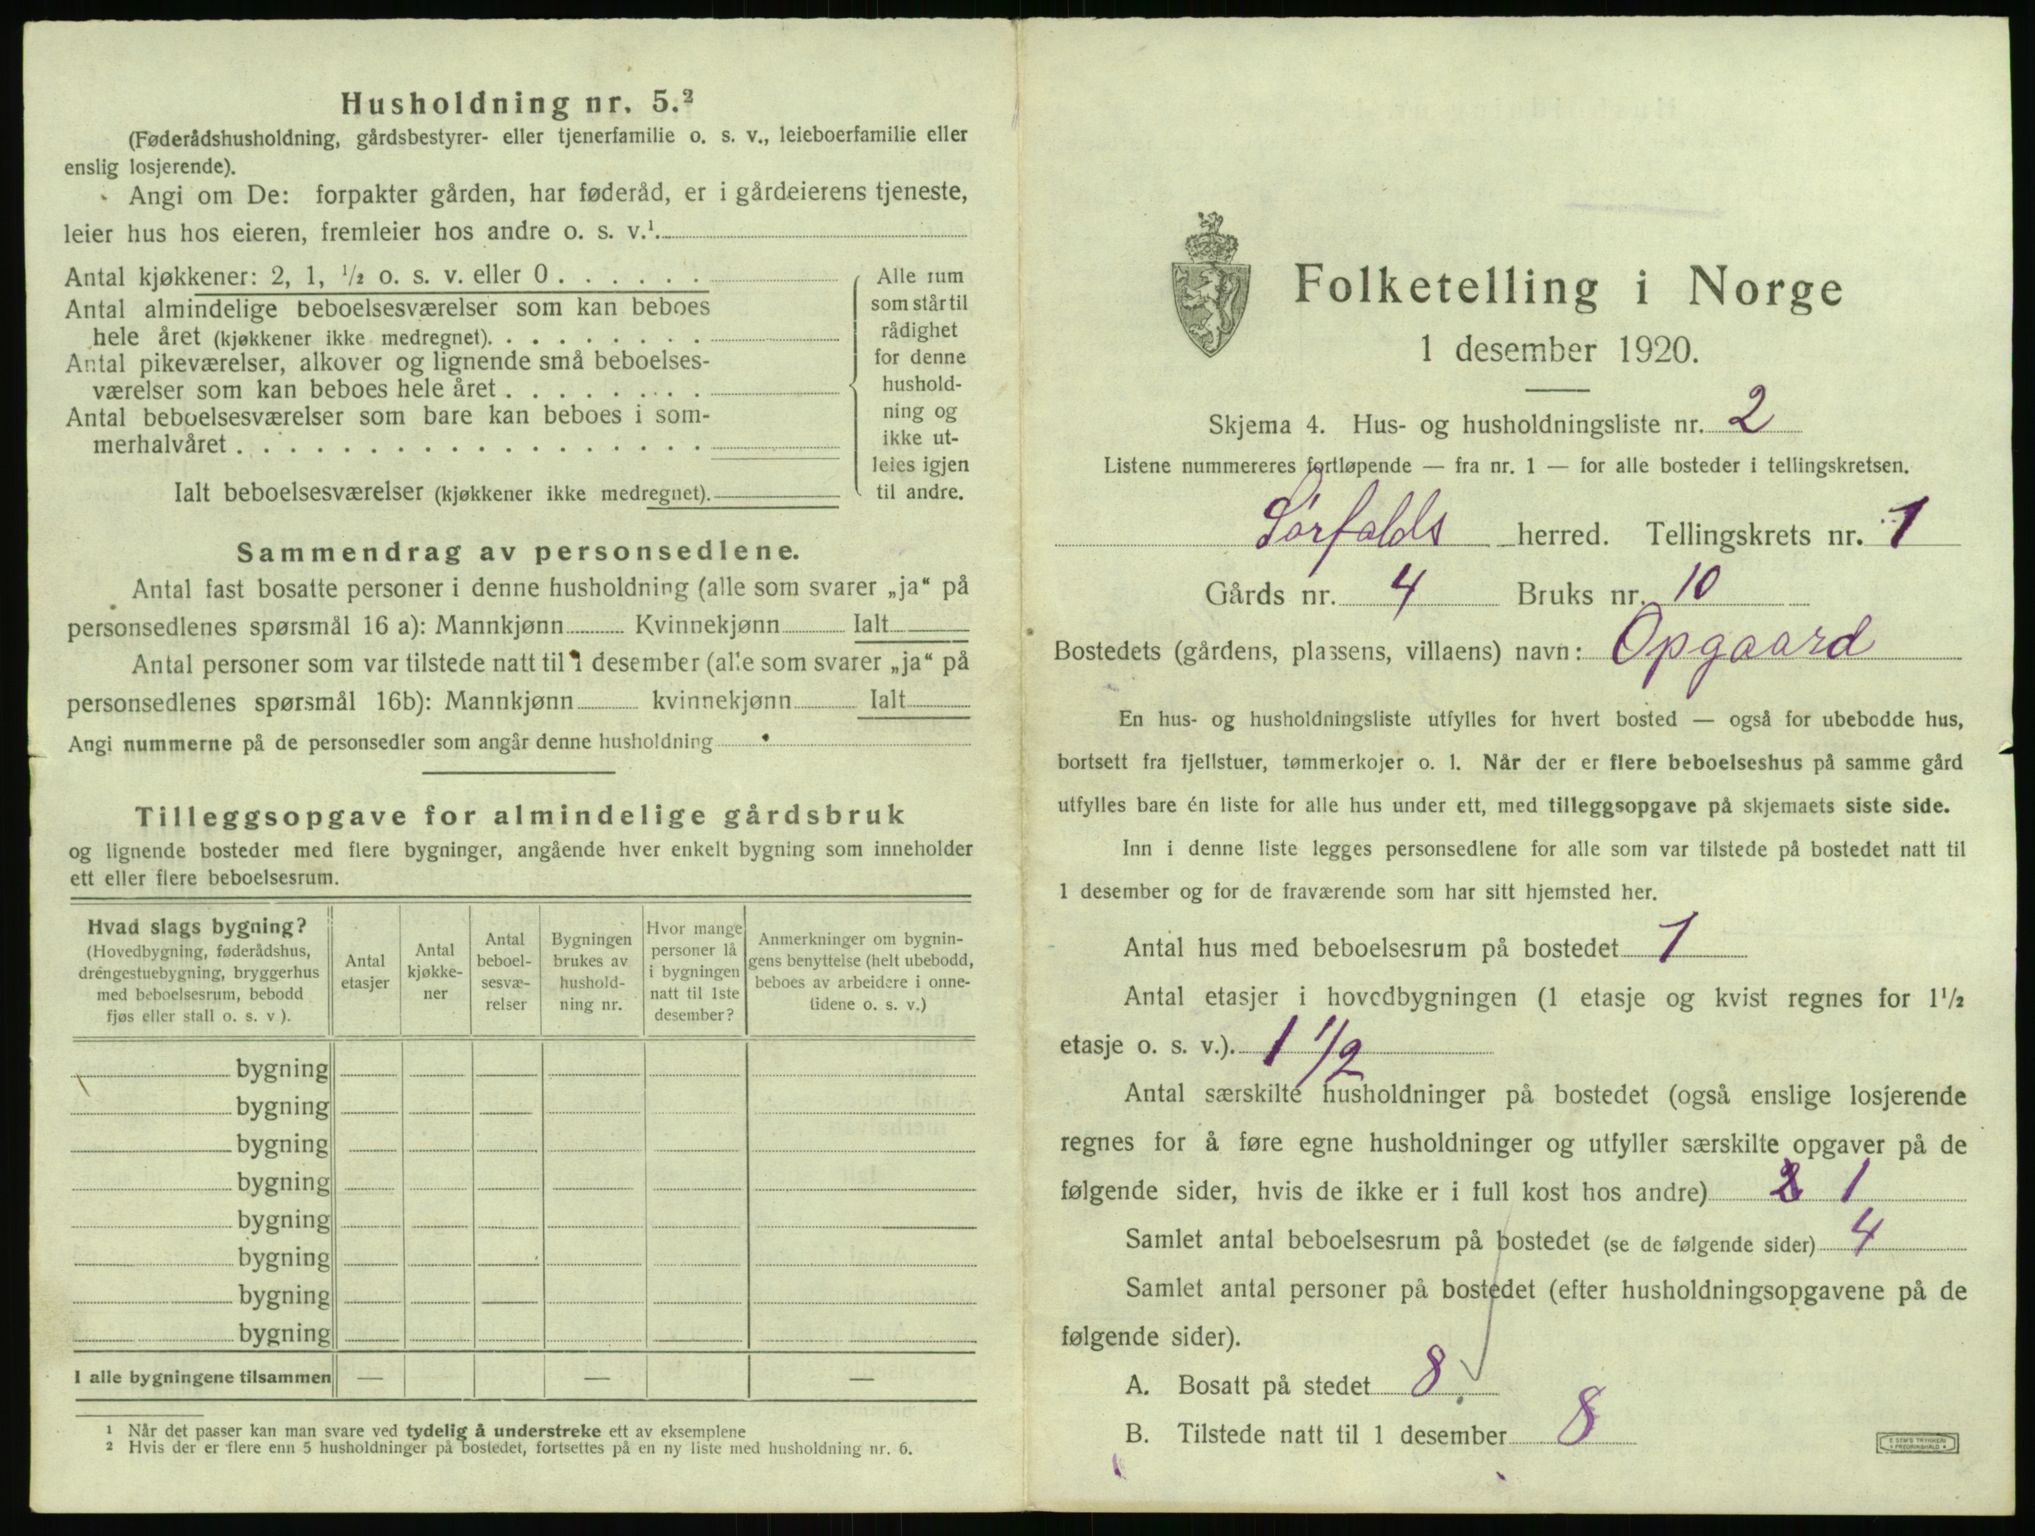 Husholdning nr. 5.²
(Føderådshusholdning, gårdsbestyrer- eller tjenerfamilie o. s. v., leieboerfamilie eller
enslig losjerende).
Angi om De: forpakter gården, har føderåd, er i gårdeierens tjeneste,
leier hus hos eieren, fremleier hos andre o. s. v.¹.
Antal kjøkkener: 2, 1, ½ o. s. v. eller 0 . . . . . .
Antal almindelige beboelsesværelser som kan beboes
hele året (kjøkkener ikke medregnet). . . . . . . . .
Antal pikeværelser, alkover og lignende små beboelses-
værelser som kan beboes hele året . . . . . . . .
Antal beboelsesværelser som bare kan beboes i som-
merhalvåret . . . . . . . . . . . . . . . . . .
Ialt beboelsesværelser (kjøkkener ikke medregnet).
Alle rum
som står til
rådighet
for denne
hushold-
ning og
ikke ut-
leies igjen
til andre.
Sammendrag av personsedlene.
Antal fast bosatte personer i denne husholdning (alle som svarer „ja“ på
personsedlenes spørsmål 16 a): Mannkjønn Kvinnekjønn Ialt
Antal personer som var tilstede natt til 1 desember (alle som svarer „ja“ på
personsedlenes spørsmål 16b): Mannkjønn kvinnekjønn Ialt
Angi nummerne på de personsedler som angår denne husholdning
Tilleggsopgave for almindelige gårdsbruk
og lignende bosteder med flere bygninger, angående hver enkelt bygning som inneholder
ett eller flere beboelsesrum.
Hvad slags bygning?
(Hovedbygning, føderådshus,
drengestuebygning, bryggerhus
med beboelsesrum, bebodd
fjøs eller stall o. s. v ).
Antal
etasjer
Antal
kjøkke-
ner
Antal
beboel-
sesvæ-
relser
Bygningen
brukes av
hushold-
ning nr.
Hvor mange
personer lå
i bygningen
natt til 1ste
desember?
Anmerkninger om bygnin-
gens benyttelse (helt ubebodd,
beboes av arbeidere i onne-
tidene o. s. v.)
bygning
bygning
bygning
bygning
bygning
bygning
bygning
bygning
I alle bygningene tilsammen — — —
¹ Når det passer kan man svare ved tydelig å understreke ett av eksemplene
² Hvis der er flere enn 5 husholdninger på bostedet, fortsettes på en ny liste med husholdning nr. 6.
Folketelling i Norge
1 desember 1920.
Skjema 4. Hus- og husholdningsliste nr. 2
Listene nummereres fortløpende — fra nr. 1 — for alle bosteder i tellingskretsen.
Sørfolds herred. Tellingskrets nr. 1
Gårds nr. 4 Bruks nr. 10
Bostedets (gårdens, plassens, villaens) navn: Opgaard
En hus- og husholdningsliste utfylles for hvert bosted — også for ubebodde hus,
bortsett fra fjellstuer, tømmerkojer o. l. Når der er flere beboelseshus på samme gård
utfylles bare én liste for alle hus under ett, med tilleggsopgave på skjemaets siste side.
Inn i denne liste legges personsedlene for alle som var tilstede på bostedet natt til
1 desember og for de fraværende som har sitt hjemsted her.
Antal hus med beboelsesrum på bostedet 1
Antal etasjer i hovedbygningen (1 etasje og kvist regnes for 1½
etasje o. s. v.). 1 1/2
Antal særskilte husholdninger på bostedet (også enslige losjerende
regnes for å føre egne husholdninger og utfyller særskilte opgaver på de
følgende sider, hvis de ikke er i full kost hos andre) 1
Samlet antal beboelsesrum på bostedet (se de følgende sider) 4
Samlet antal personer på bostedet (efter husholdningsopgavene på de
følgende sider).
A. Bosatt på stedet 8
B. Tilstede natt til 1 desember 8